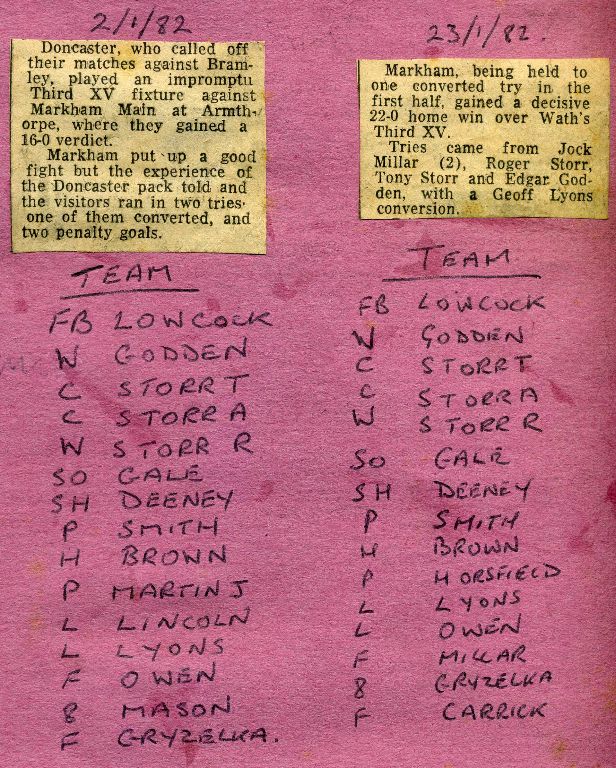 2/1/82
Doncaster, who called off
their matches against Bram-
ley, played an impromptu
Third XV fixture against
Markham Main at Armth-
orpe, where they gained a
16-0 verdict.
Markham put up a good
fight but the experience of
the Doncaster pack told and
the visitors ran in two tries
one of them converted, and
two penalty goals.
TEAM
FB LOWCOCK
W GODDEN
C STORR T
C STORR A
W STORR R
SO GALE
SH DEENEY
P SMITH
H BROWN
P MARTIN J
L LINCOLN
L LYONS
F OWEN
8 MASON
F GRYZELKA.
23/1/82.
Markham, being held to
one converted try in the
first half, gained a decisive
22-0 home win over Wath's
Third XV.
Tries came from Jock
Millar (2), Roger Storr,
Tony Storr and Edgar God-
den, with a Geoff Lyons
conversion.
TEAM
FB LOWCOCK
W GODDEN
C STORR T
C STORR A
W STORR R
SO GALE
SH DEENEY
P SMITH
H BROWN
P HORSFIELD
L LYONS
L OWEN
F MILLAR
8 GRYZELKA
F CARRICK